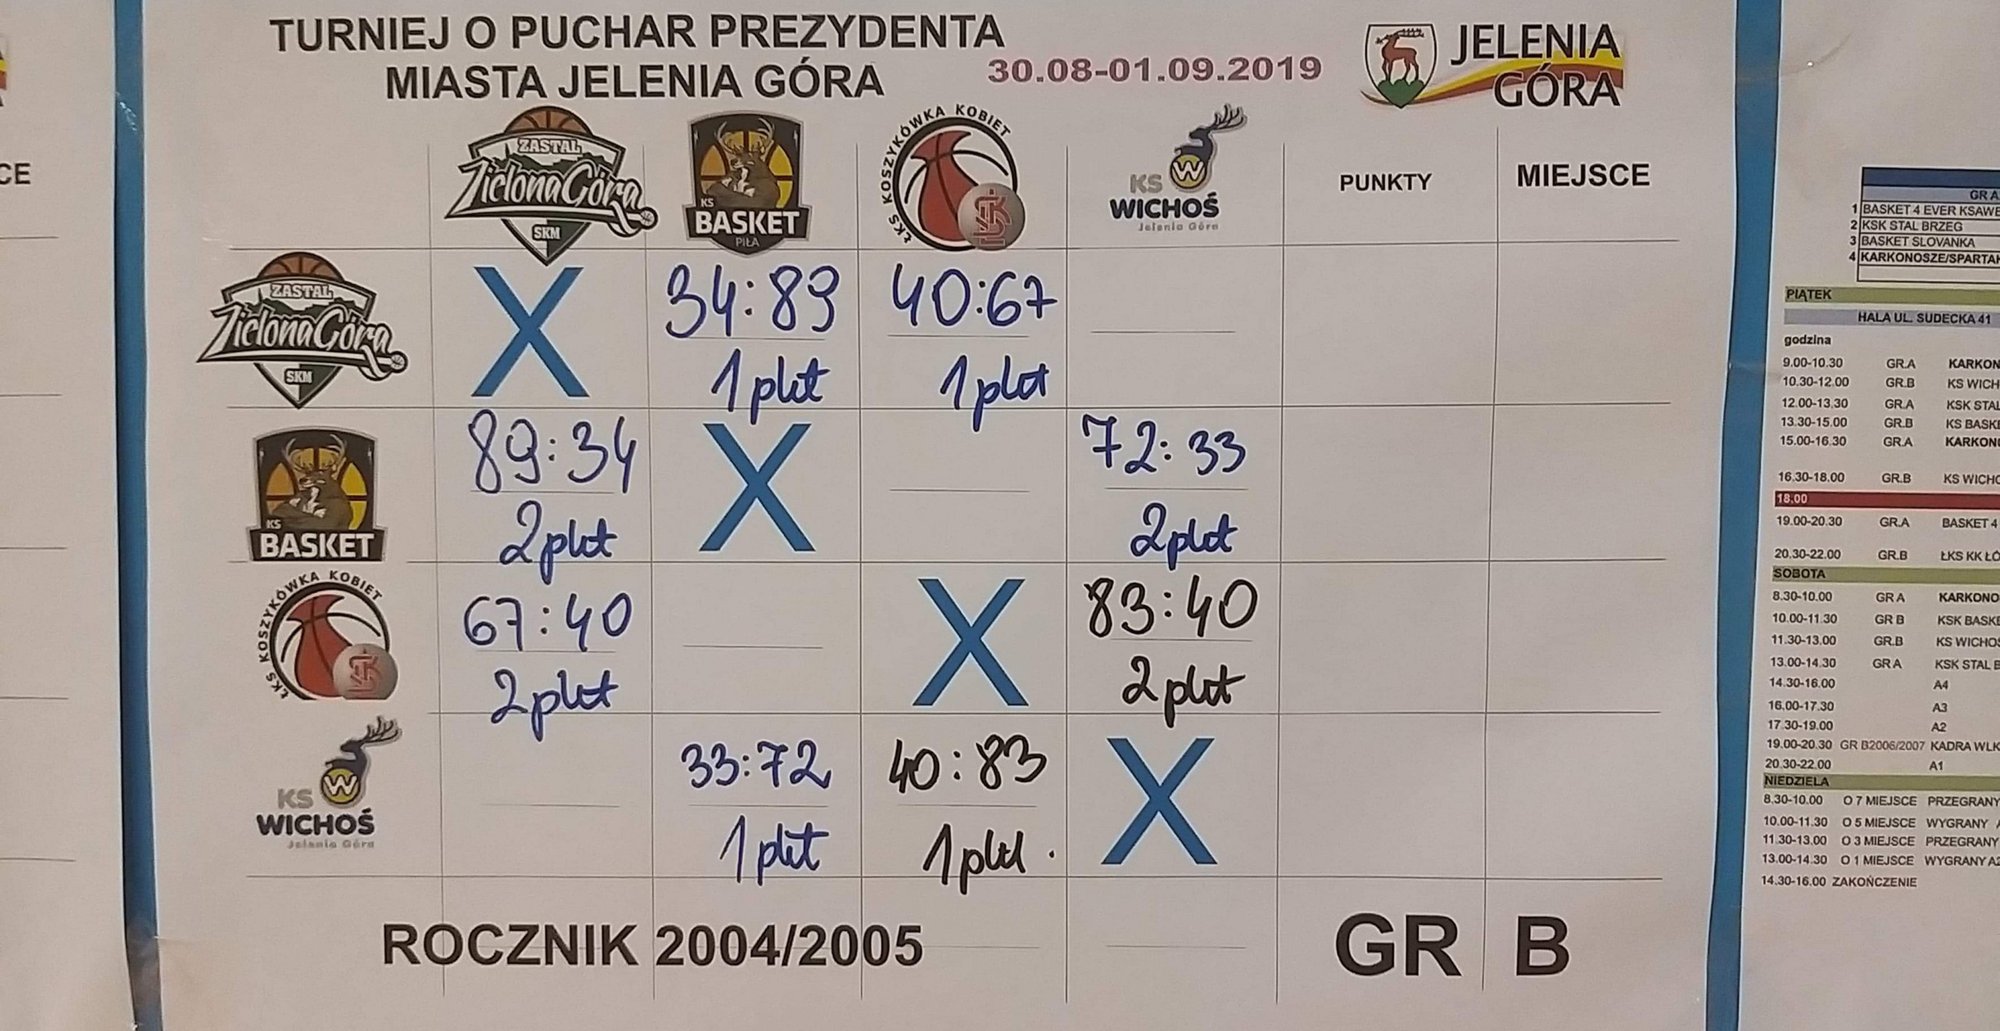 TURNIEJ O PUCHAR PREZYDENTA
MIASTA JELENIA GÓRA
30.08-01.09.2019
JELENIA
GÓRA
ZASTAL
Zielona Góra
SKM
KS
BASKET
PIŁA
ŁKS KOSZYKÓWKA KOBIET
ŁKS
KS
W
WICHOŚ
Jelenia Góra
PUNKTY
MIEJSCE
ZASTAL
Zielona Góra
SKM
X
34:89
1 pkt
40:67
1 pkt
KS
BASKET
89:34
2 pkt
X
72:33
2 pkt
ŁKS KOSZYKÓWKA KOBIET
ŁKS
67:40
2 pkt
X
83:40
2 pkt
KS
W
WICHOŚ
Jelenia Góra
33:72
1 pkt
40:83
1 pkt.
X
ROCZNIK 2004/2005
GR B
CE
GR A
1 BASKET 4 EVER KSAWE
2 KSK STAL BRZEG
3 BASKET SLOVANKA
4 KARKONOSZE/SPARTAK
PIĄTEK
HALA UL. SUDECKA 41
godzina
9.00-10.30 GR.A KARKON
10.30-12.00 GR.B KS WICH
12.00-13.30 GR.A KSK STAL
13.30-15.00 GR.B KS BASKE
15.00-16.30 GR.A KARKONO
16.30-18.00 GR.B KS WICHO
18.00
19.00-20.30 GR.A BASKET 4
20.30-22.00 GR.B ŁKS KK ŁÓ
SOBOTA
8.30-10.00 GR A KARKONO
10.00-11.30 GR B KSK BASKE
11.30-13.00 GR.B KS WICHOŚ
13.00-14.30 GR A KSK STAL B
14.30-16.00 A4
16.00-17.30 A3
17.30-19.00 A2
19.00-20.30 GR B2006/2007 KADRA WLK
20.30-22.00 A1
NIEDZIELA
8.30-10.00 O 7 MIEJSCE PRZEGRANY
10.00-11.30 O 5 MIEJSCE WYGRANY A
11.30-13.00 O 3 MIEJSCE PRZEGRANY
13.00-14.30 O 1 MIEJSCE WYGRANY A2
14.30-16.00 ZAKOŃCZENIE